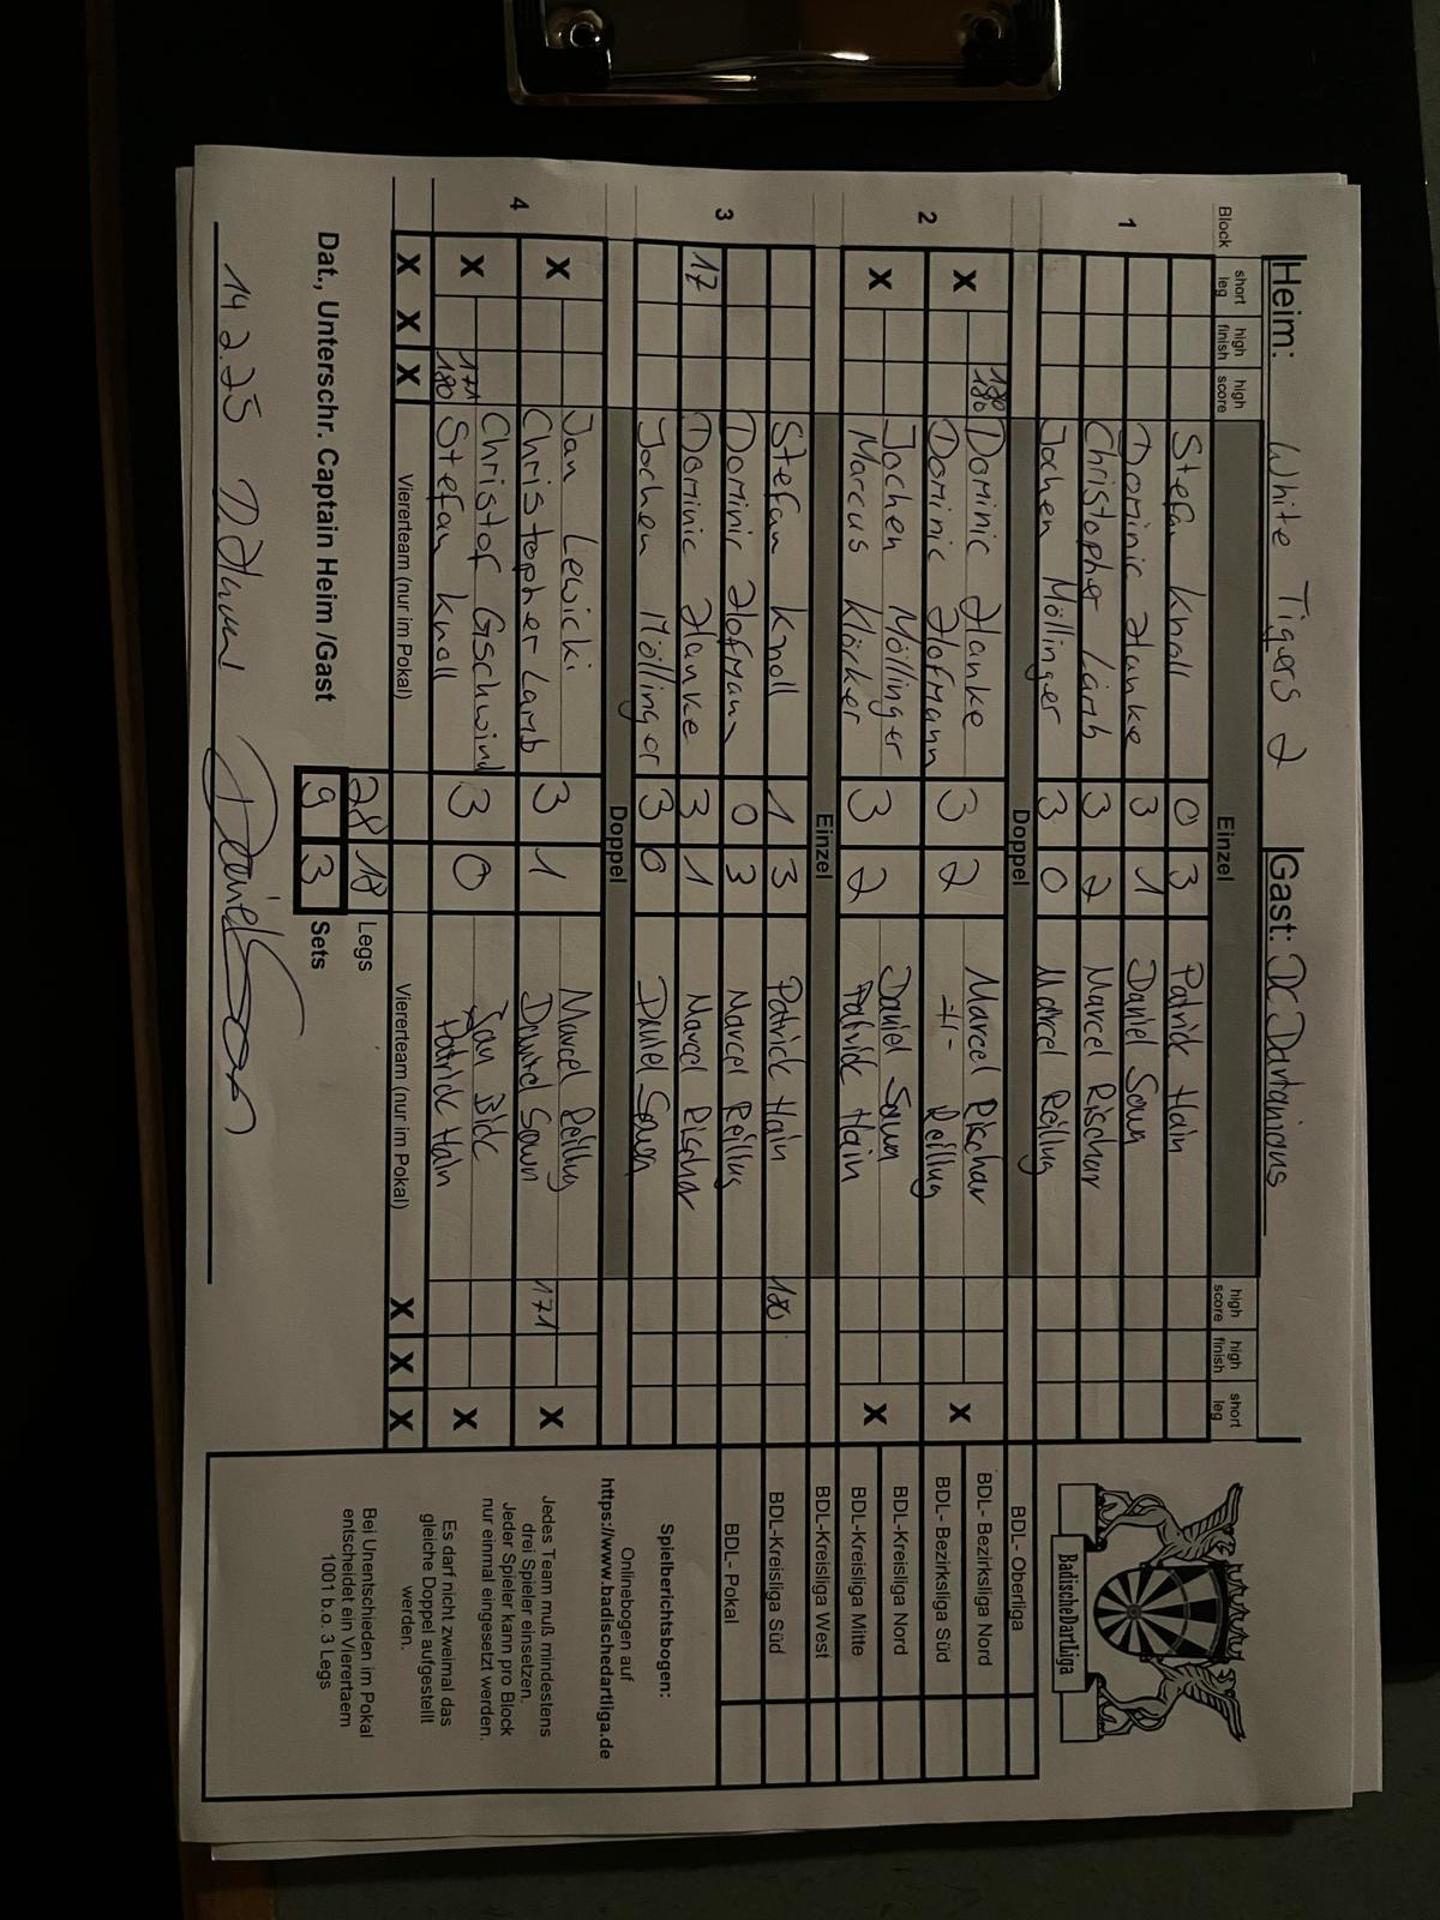 Heim: White Tigers 2 Gast: DC Dartagnans
Block short leg high finish high score Einzel high score high finish short leg
1
Stefan Knoll 0 3 Patrick Hain
Dominic Hanke 3 1 Daniel Sown
Christopher Lamb 3 2 Marcel Rischar
Jochen Möllinger 3 0 Marcel Reiling
Doppel
2
X 180 180 Dominic Hanke 3 2 Marcel Rischar X
Dominic Hofmann -II- Reiling
X Jochen Möllinger 3 2 Daniel Sown X
Marcus Klöcker Patrick Hain
Einzel
3
Stefan Knoll 1 3 Patrick Hain 180
Dominic Hofmann 0 3 Marcel Reiling
17 Dominic Hanke 3 1 Marcel Rischar
Jochen Möllinger 3 0 Daniel Sown
Doppel
4
X Jan Lewicki 3 1 Marcel Reiling X
Christopher Lamb Daniel Sown 171
X 171 Christof Gschwind 3 0 Jan Bick X
180 Stefan Knoll Patrick Hain
X X X Viererteam (nur im Pokal) Viererteam (nur im Pokal) X X X
28 18 Legs
Dat., Unterschr. Captain Heim /Gast 9 3 Sets
14.2.25
BadischeDartLiga
BDL- Oberliga
BDL- Bezirksliga Nord
BDL- Bezirksliga Süd
BDL-Kreisliga Nord
BDL-Kreisliga Mitte
BDL-Kreisliga West
BDL-Kreisliga Süd
BDL- Pokal
Spielberichtsbogen:
Onlinebogen auf
https://www.badischedartliga.de
Jedes Team muß mindestens
drei Spieler einsetzen.
Jeder Spieler kann pro Block
nur einmal eingesetzt werden.
Es darf nicht zweimal das
gleiche Doppel aufgestellt
werden.
Bei Unentschieden im Pokal
entscheidet ein Vierertaem
1001 b.o. 3 Legs